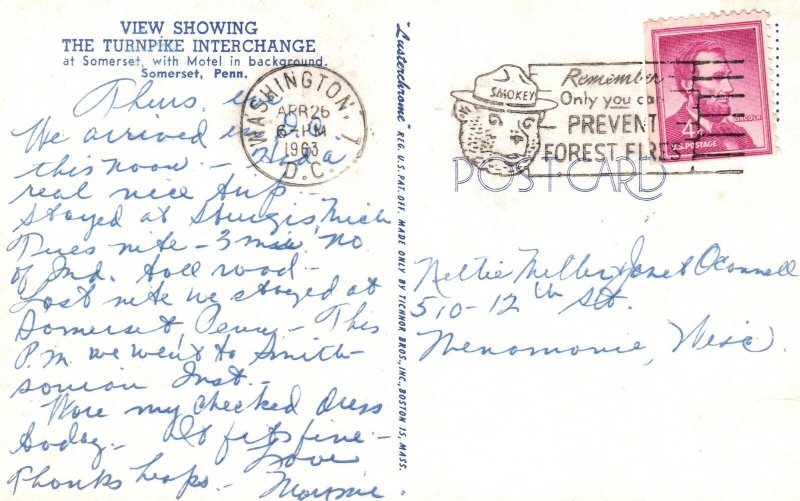 VIEW SHOWING
THE TURNPIKE INTERCHANGE
at Somerset, with Motel in background.
Somerset, Penn.
Thurs. eve
We arrived in D.C.
this noon - Had a
real nice trip -
Stayed at Sturgis, Mich
Tues nite - 3 miles no.
of Ind. toll road -
Last nite we stayed at
Somerset, Penn - This
P.M. we went to Smith-
sonian Inst. -
Wore my checked dress
today - It fits fine -
Thanks heaps - Love
"Lusterchrome" REG. U.S. PAT. OFF. MADE ONLY BY TICHNOR BROS., INC., BOSTON 15, MASS.
WASHINGTON, 1
APR 26
PM
1963
D.C.
SMOKEY
Remember-
Only you ca
PREVENT
FOREST FIRES
4¢
LINCOLN
U.S. POSTAGE
POST CARD
Nettie Miller Janet O'Connell
510-12th St.
Menomonie, Wisc.